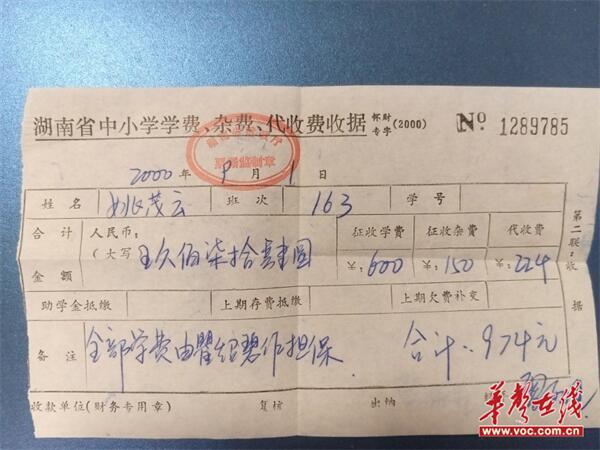 湖南省中小学学费、杂费、代收费收据 怀财专字(2000) № 1289785
2000年 9月 1日
姓名 姚茂云 班次 163 学号
合计金额 人民币:(大写) 玖佰柒拾肆圆 征收学费 ¥:600 征收杂费 ¥:150 代收费 ¥:224
第二联:收据
助学金抵缴 上期存费抵缴 上期欠费补交
备注 全部学费由瞿绍碧作担保. 合计:974元
收款单位(财务专用章) 复核 出纳
华声在线
www.voc.com.cn